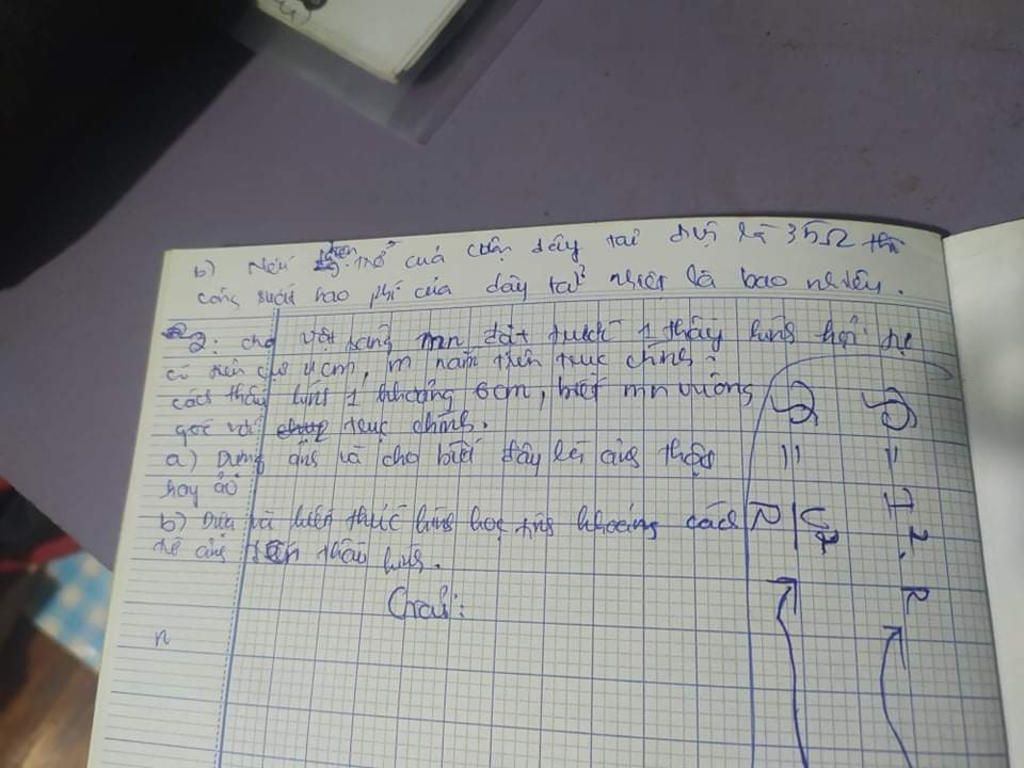 b) Nếu điện trở của cuộn dây tải điện là 35Ω thì
công suất hao phí của dây tải nhiệt là bao nhiêu.
2: cho vật sáng mn đặt trước 1 thấy kính hội tụ
có tiêu cự 4cm, m nằm trên trục chính:
cách thấy kính 1 khoảng 6cm, biết mn vuông
góc với trục chính.
a) Dựng ảnh và cho biết đây là ảnh thật
hay ảo
b) Dựa và kiến thức hình học tính khoảng cách
từ ảnh đến thấu kính.
Giải:
n
P = I². R